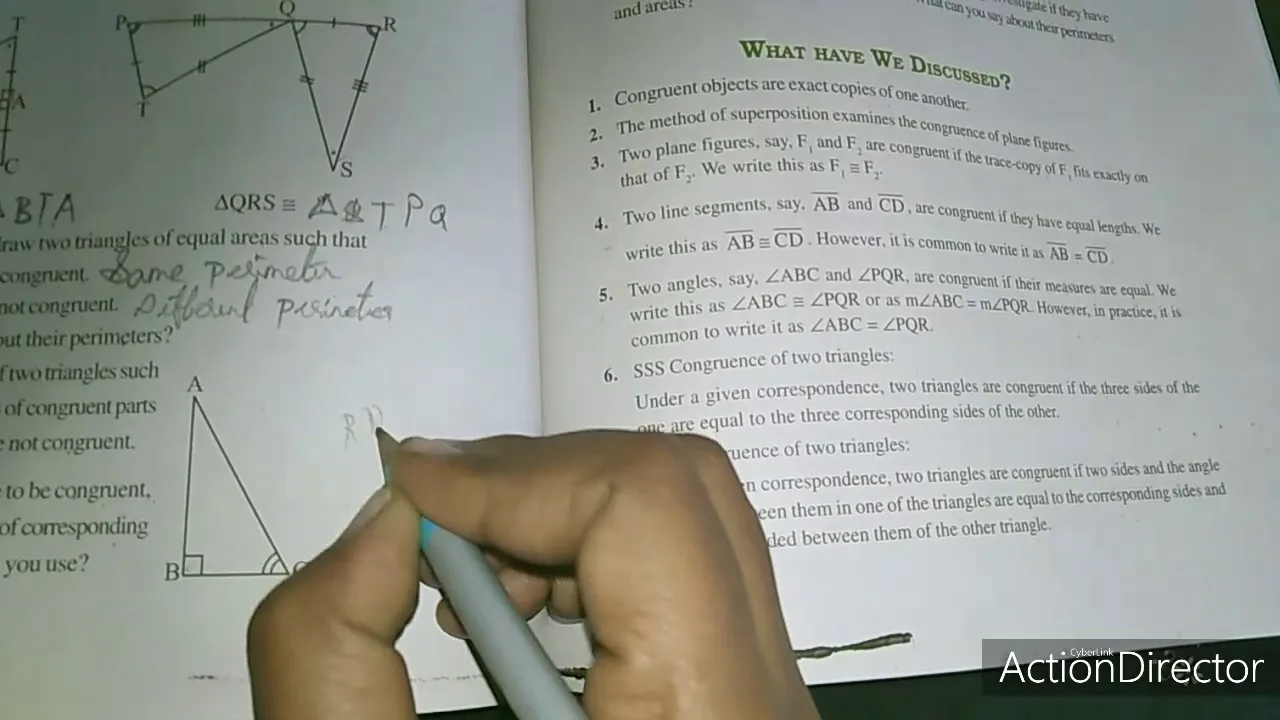 T
A
C
P
Q
R
T
S
BTA
ΔQRS ≅ Δ TPQ
raw two triangles of equal areas such that
congruent. Same perimeter
not congruent. Different perimeter
out their perimeters?
f two triangles such
of congruent parts
not congruent.
to be congruent,
of corresponding
you use?
A
B
and areas?
if they have
can you say about their perimeters
WHAT HAVE WE DISCUSSED?
1. Congruent objects are exact copies of one another.
2. The method of superposition examines the congruence of plane figures.
3. Two plane figures, say, F₁ and F₂ are congruent if the trace-copy of F₁ fits exactly on
that of F₂. We write this as F₁ ≅ F₂.
4. Two line segments, say, A̅B̅ and C̅D̅, are congruent if they have equal lengths. We
write this as A̅B̅ ≅ C̅D̅. However, it is common to write it as A̅B̅ = C̅D̅.
5. Two angles, say, ∠ABC and ∠PQR, are congruent if their measures are equal. We
write this as ∠ABC ≅ ∠PQR or as m∠ABC = m∠PQR. However, in practice, it is
common to write it as ∠ABC = ∠PQR.
6. SSS Congruence of two triangles:
Under a given correspondence, two triangles are congruent if the three sides of the
one are equal to the three corresponding sides of the other.
uence of two triangles:
n correspondence, two triangles are congruent if two sides and the angle
een them in one of the triangles are equal to the corresponding sides and
ded between them of the other triangle.
R
CyberLink
ActionDirector